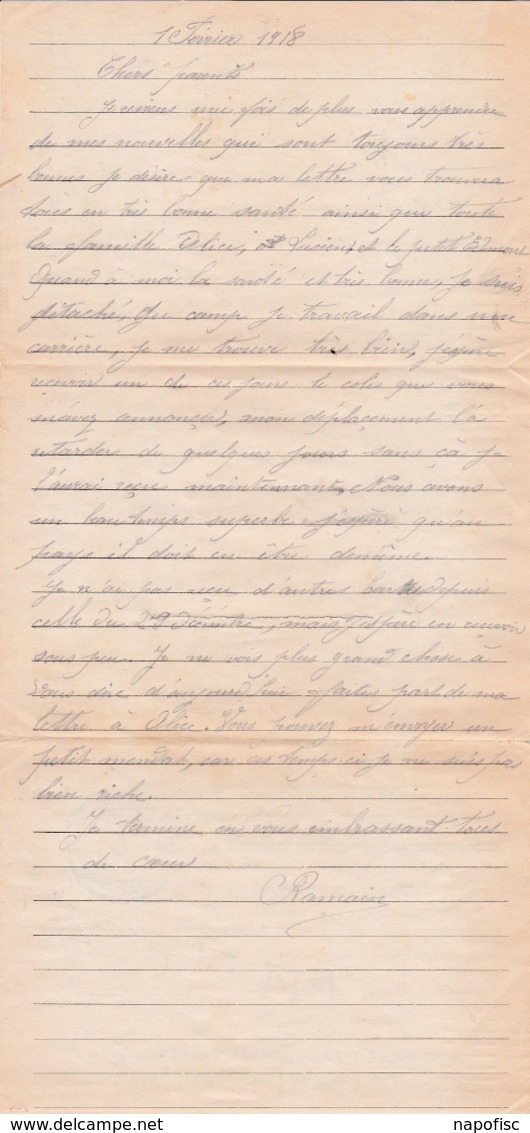 1 Fevrier 1918
Chers parents
Je reviens une fois de plus vous apprendre
de mes nouvelles qui sont toujours très
bonnes je désire que ma lettre vous trouvera
tous en très bonne santé ainsi que toute
la famille Alice, et Lucien, et le petit Edmond
Quand à moi la santé et très bonne, je suis
détaché, du camp je travail dans une
carrière, je me trouve très bien, j'espère
recevoir un de ces jours le colis que vous
m'avez annoncer, mon déplacement l'a
retarder de quelques jours sans ça je
l'aurai reçu maintennant. Nous avons
un beau temps superbe j'espère qu'au
pays il doit en être demême.
Je n'ai pas reçu d'autres Carte depuis
celle du 29 Décembre, mais j'espère en recevoir
sous peu. Je ne vois plus grand chose à
vous dire d'aujourd'hui faites part de ma
lettre à Alice. Vous pouvez m'envoyer un
petit mendat, car ces temps ci je ne suis pas
bien riche.
Je termine en vous embrassant tous
de cœur
Ramain
www.delcampe.net
napofisc